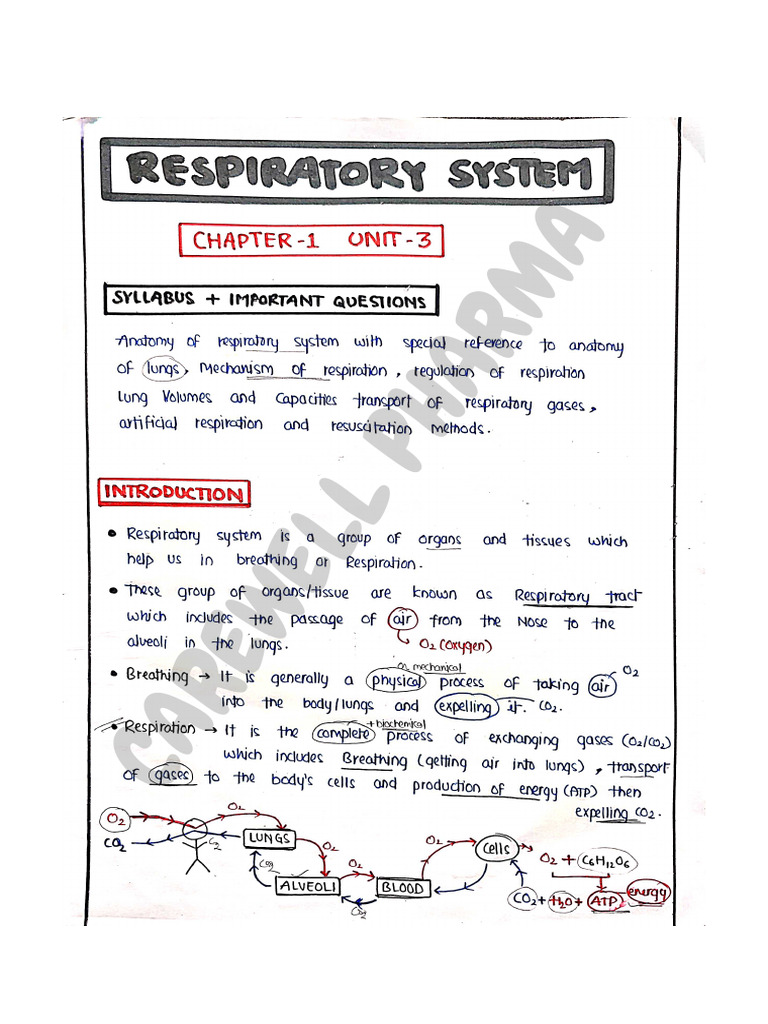 RESPIRATORY SYSTEM
CHAPTER-1 UNIT-3
SYLLABUS + IMPORTANT QUESTIONS
Anatomy of respiratory system with special reference to anatomy
of lungs, Mechanism of respiration, regulation of respiration
Lung Volumes and Capacities transport of respiratory gases,
artificial respiration and resuscitation methods.
INTRODUCTION
• Respiratory system is a group of organs and tissues which
help us in breathing or Respiration.
• These group of organs/tissue are known as Respiratory tract
which includes the passage of air from the Nose to the
alveoli in the lungs.
O2 (oxygen)
or mechanical
• Breathing → It is generally a physical process of taking air O2
into the body/lungs and expelling it. CO2.
+ biochemical
• Respiration → It is the complete process of exchanging gases (O2/CO2)
which includes Breathing (getting air into lungs), transport
of gases to the body's cells and production of energy (ATP) then
expelling CO2.
O2 O2 LUNGS O2 O2 O2 Cells O2 + C6H12O6
CO2 CO2 ALVEOLI BLOOD energy
CO2 CO2 + H2O + ATP
CAREWELL PHARMA